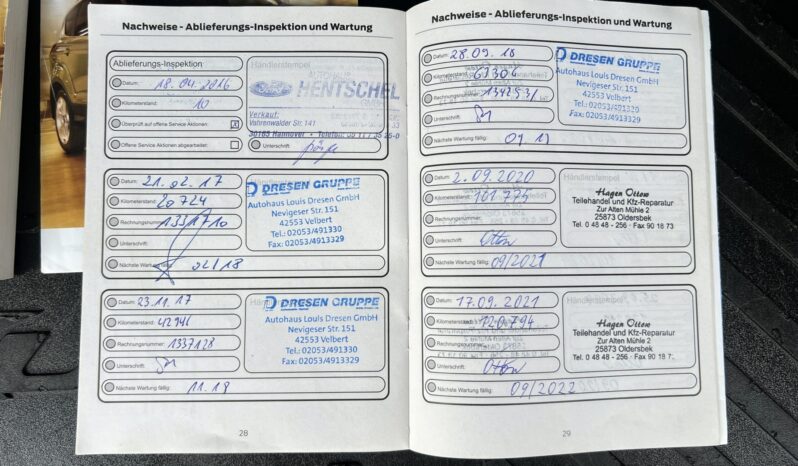 Nachweise - Ablieferungs-Inspektion und Wartung
Ablieferungs-Inspektion
Händlerstempel
Datum: 18.04.2016
Kilometerstand: 10
Überprüft auf offene Service Aktionen: X
Offene Service Aktionen abgearbeitet:
Ford
AUTOHAUS
HENTSCHEL
GMBH
Verkauf:
Vahrenwalder Str. 141
30165 Hannover
Unterschrift
Datum: 21.02.17
Kilometerstand: 20724
Rechnungsnummer: 1331710
Unterschrift:
Nächste Wartung fällig: 02/18
DRESEN GRUPPE
Autohaus Louis Dresen GmbH
Nevigeser Str. 151
42553 Velbert
Tel.: 02053/491330
Fax: 02053/4913329
Datum: 23.11.17
Kilometerstand: 42946
Rechnungsnummer: 1337128
Unterschrift:
Nächste Wartung fällig: 11.18
DRESEN GRUPPE
Autohaus Louis Dresen GmbH
Nevigeser Str. 151
42553 Velbert
Tel.: 02053/491330
Fax: 02053/4913329
28
Nachweise - Ablieferungs-Inspektion und Wartung
Datum: 28.09.18
Kilometerstand:
Rechnungsnummer:
Unterschrift:
Nächste Wartung fällig: 09 19
DRESEN GRUPPE
Autohaus Louis Dresen GmbH
Nevigeser Str. 151
42553 Velbert
Tel.: 02053/491330
Fax: 02053/4913329
Datum: 2.09.2020
Kilometerstand: 101775
Rechnungsnummer:
Unterschrift: Otton
Nächste Wartung fällig: 09/2021
Händlerstempel
Hagen Ottow
Teilehandel und Kfz-Reparatur
Zur Alten Mühle 2
25873 Oldersbek
Tel. 0 48 48 - 256 · Fax 90 18 73
Datum: 17.09.2021
Kilometerstand: 120794
Rechnungsnummer:
Unterschrift: Otton
Nächste Wartung fällig: 09/2022
Händlerstempel
Hagen Ottow
Teilehandel und Kfz-Reparatur
Zur Alten Mühle 2
25873 Oldersbek
Tel. 0 48 48 - 256 · Fax 90 18 7
29